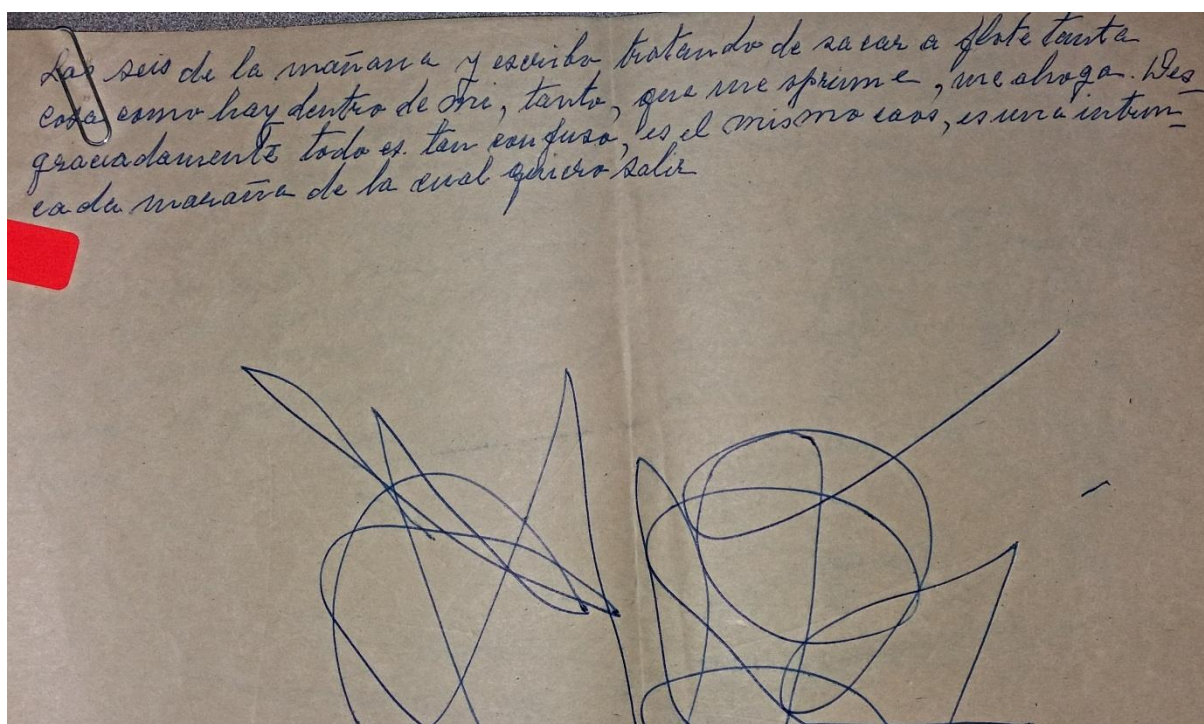 Las seis de la mañana y escribo tratando de sacar a flote tanta
cosa como hay dentro de mi, tanto, que me oprime, me ahoga. Des_
graciadamente todo es tan confuso, es el mismo caos, es una intrin_
cada maraña de la cual quiero salir